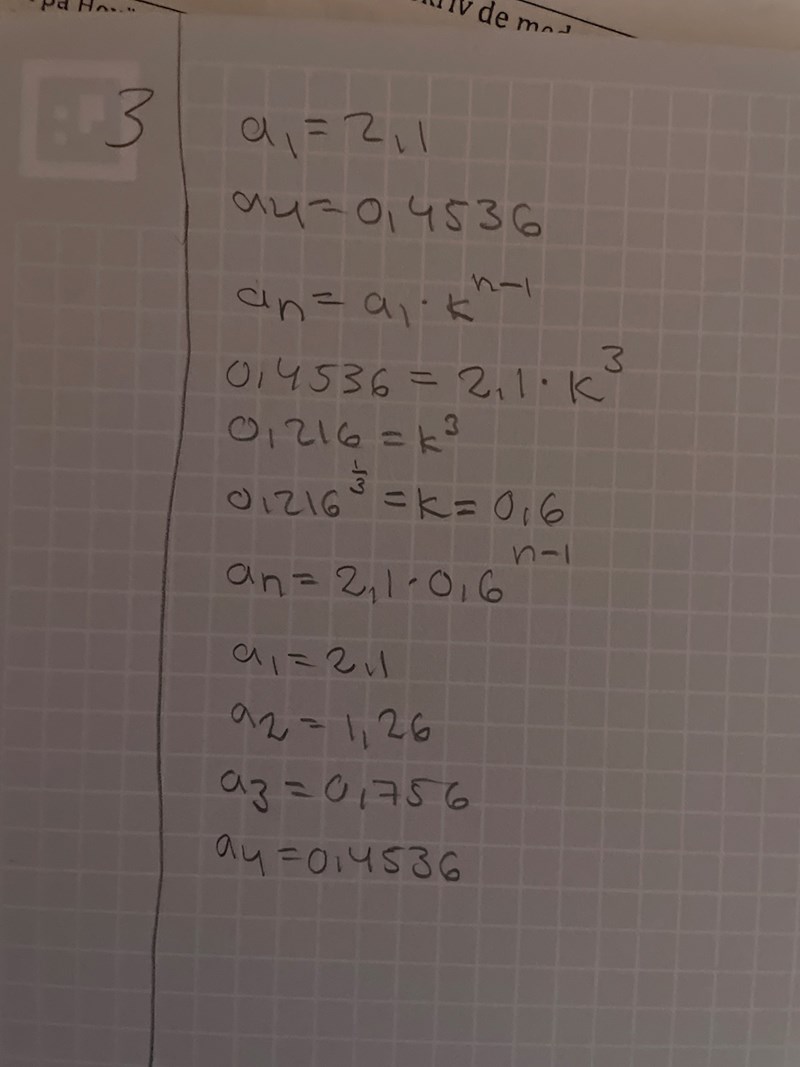 de
3
a₁ = 2,1
a₄ = 0,4536
aₙ = a₁ · k^(n-1)
0,4536 = 2,1 · k³
0,216 = k³
0,216^(1/3) = k = 0,6
aₙ = 2,1 · 0,6^(n-1)
a₁ = 2,1
a₂ = 1,26
a₃ = 0,756
a₄ = 0,4536